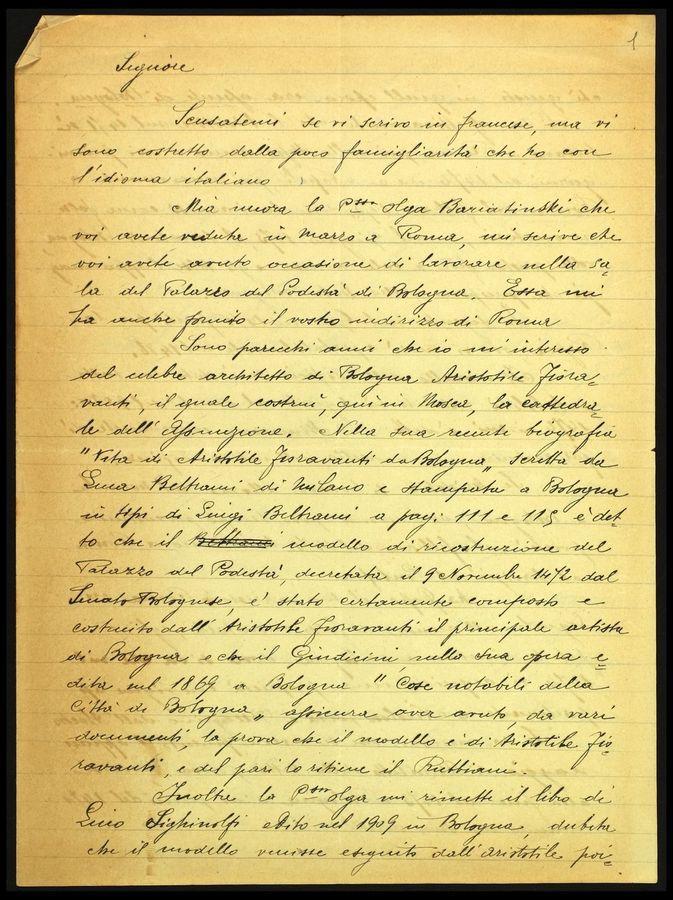 1
Signore
Scusatemi se vi scrivo in francese, ma vi
sono costretto dalla poco famigliarità che ho con
l'idioma italiano
Mia nuora la Pssa Olga Bariatinski che
voi avete veduta in Marzo a Roma, mi scrive che
voi avete avuto occasione di lavorare nella sa=
la del Palazzo del Podestà di Bologna. Essa mi
ha anche fornito il vostro indirizzo di Roma
Sono parecchi anni che io m'interesso
del celebre architetto di Bologna Aristotile Fiora=
vanti, il quale costruì, quì in Mosca, la cattedra=
le dell'Assunzione. Nella sua recente biografia
"Vita di Aristotile Fioravanti da Bologna" scritta da
Luca Beltrami di Milano e stampata a Bologna
in tipi di Luigi Beltrami a pag: 111 e 115 è det
to che il Beltrami modello di ricostruzione del
Palazzo del Podestà, decretata il 9 Novembre 1472 dal
Senato Bolognese, e' stato certamente composto e
costruito dall'Aristotile Fioravanti il principale artista
di Bologna e che il Guidicini, nella sua opera e=
dita nel 1869 a Bologna "Cose notabili della
Città di Bologna" assicura aver avuto, da vari
documenti, la prova che il modello è di Aristotile Fio=
ravanti, e del pari lo ritiene il Rubbiani.
Inoltre la Pssa Olga mi rimette il libro di
Lino Sighinolfi edito nel 1909 in Bologna, dubita
che il modello venisse eseguito dall'Aristotile poi=